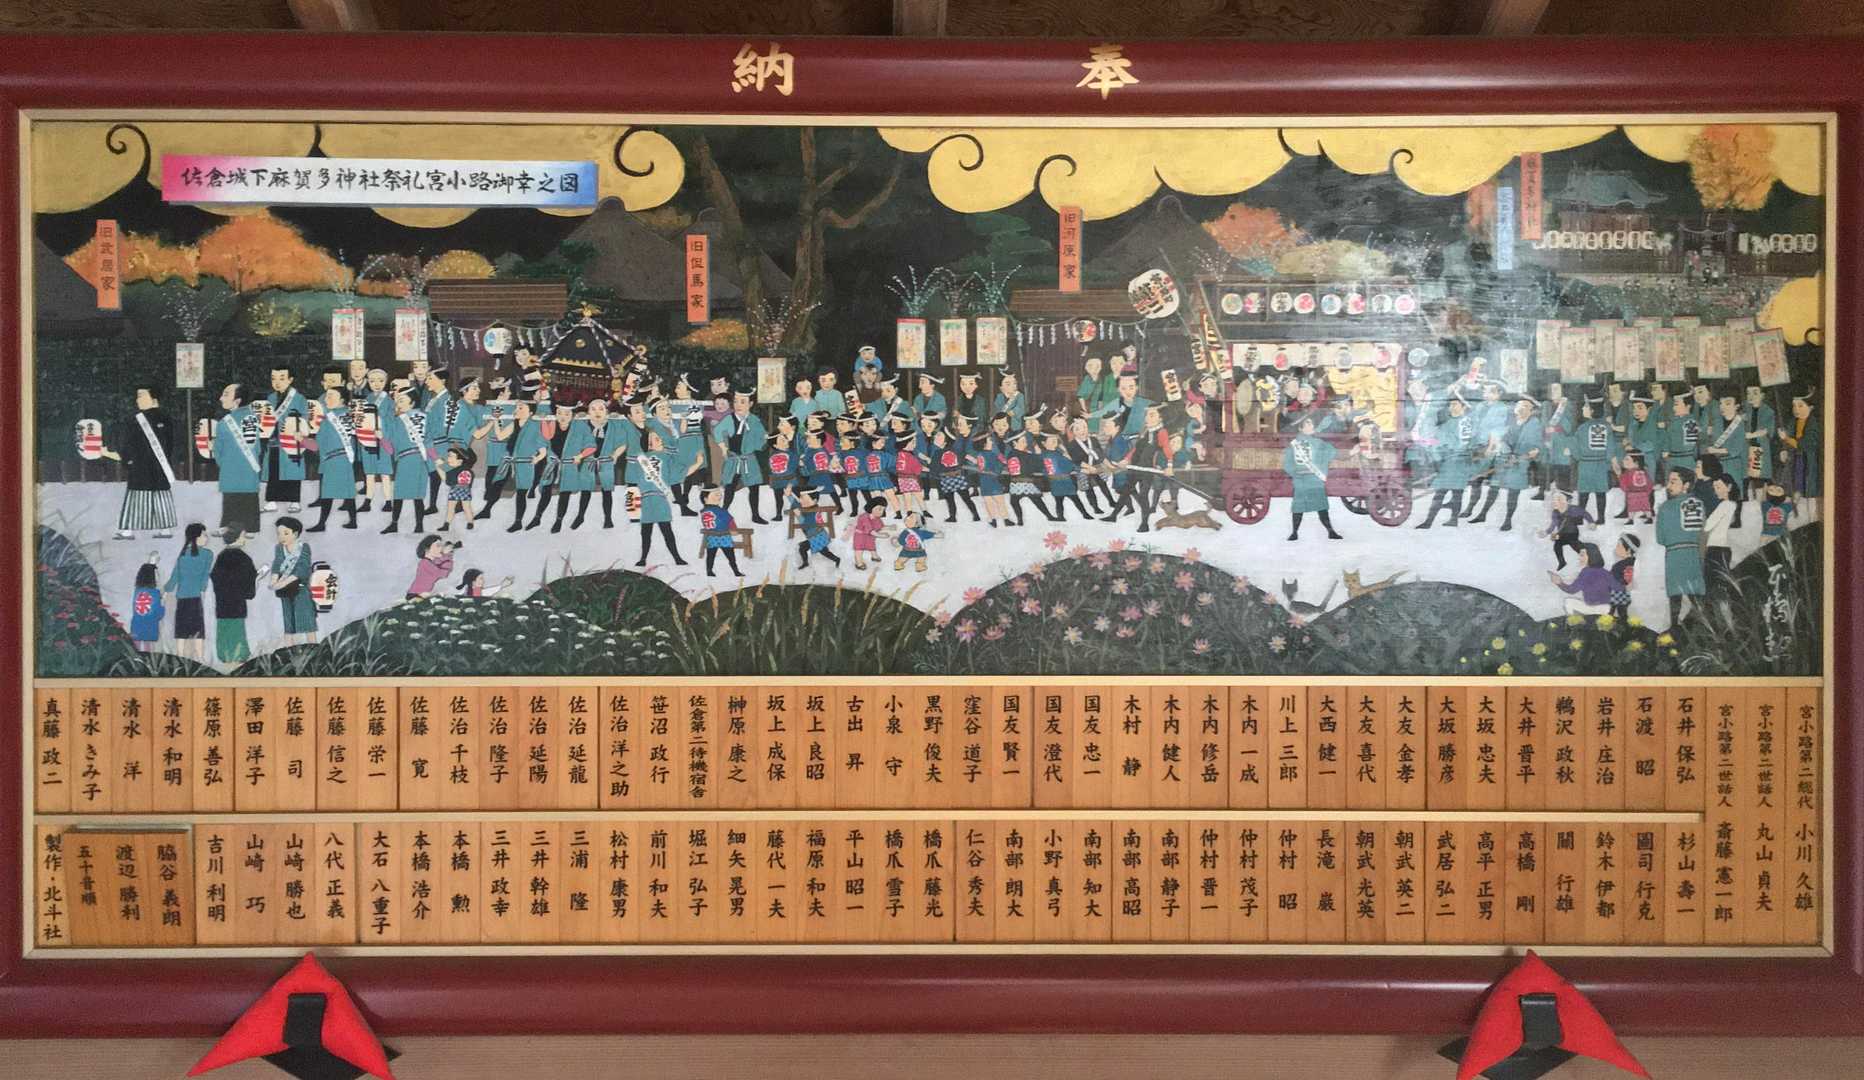 奉納
佐倉城下麻賀多神社祭礼宮小路御幸之図
旧河原家
旧但馬家
旧武居家
会計
宮小路第二総代 小川 久雄
宮小路第二世話人 丸山 貞夫
宮小路第二世話人 斎藤 憲一郎
石井 保弘
石渡 昭
岩井 庄治
鵜沢 政秋
大井 晋平
大坂 忠夫
大坂 勝彦
大友 金孝
大友 喜代
大西 健一
川上 三郎
木内 一成
木内 修岳
木内 健人
木村 静
国友 忠一
国友 澄代
国友 賢一
窪谷 道子
黒野 俊夫
小泉 守
古出 昇
坂上 良昭
坂上 成保
榊原 康之
佐倉第二待機宿舎
笹沼 政行
佐治 洋之助
佐治 延龍
佐治 延陽
佐治 隆子
佐治 千枝
佐藤 寛
佐藤 栄一
佐藤 信之
佐藤 司
澤田 洋子
篠原 善弘
清水 和明
清水 洋
清水 きみ子
真藤 政二
杉山 壽一
圖司 行克
鈴木 伊都
關 行雄
高橋 剛
高平 正男
武居 弘二
朝武 英二
朝武 光英
長滝 巌
仲村 昭
仲村 茂子
仲村 晋一
南部 静子
南部 高昭
南部 知大
小野 真弓
南部 朗大
仁谷 秀夫
橋爪 藤光
橋爪 雪子
平山 昭一
福原 和夫
藤代 一夫
細矢 晃男
堀江 弘子
前川 和夫
松村 康男
三浦 隆
三井 幹雄
三井 政幸
本橋 勲
本橋 浩介
大石 八重子
八代 正義
山﨑 勝也
山﨑 巧
吉川 利明
脇谷 義朗
渡辺 勝利
五十音順
製作・北斗社